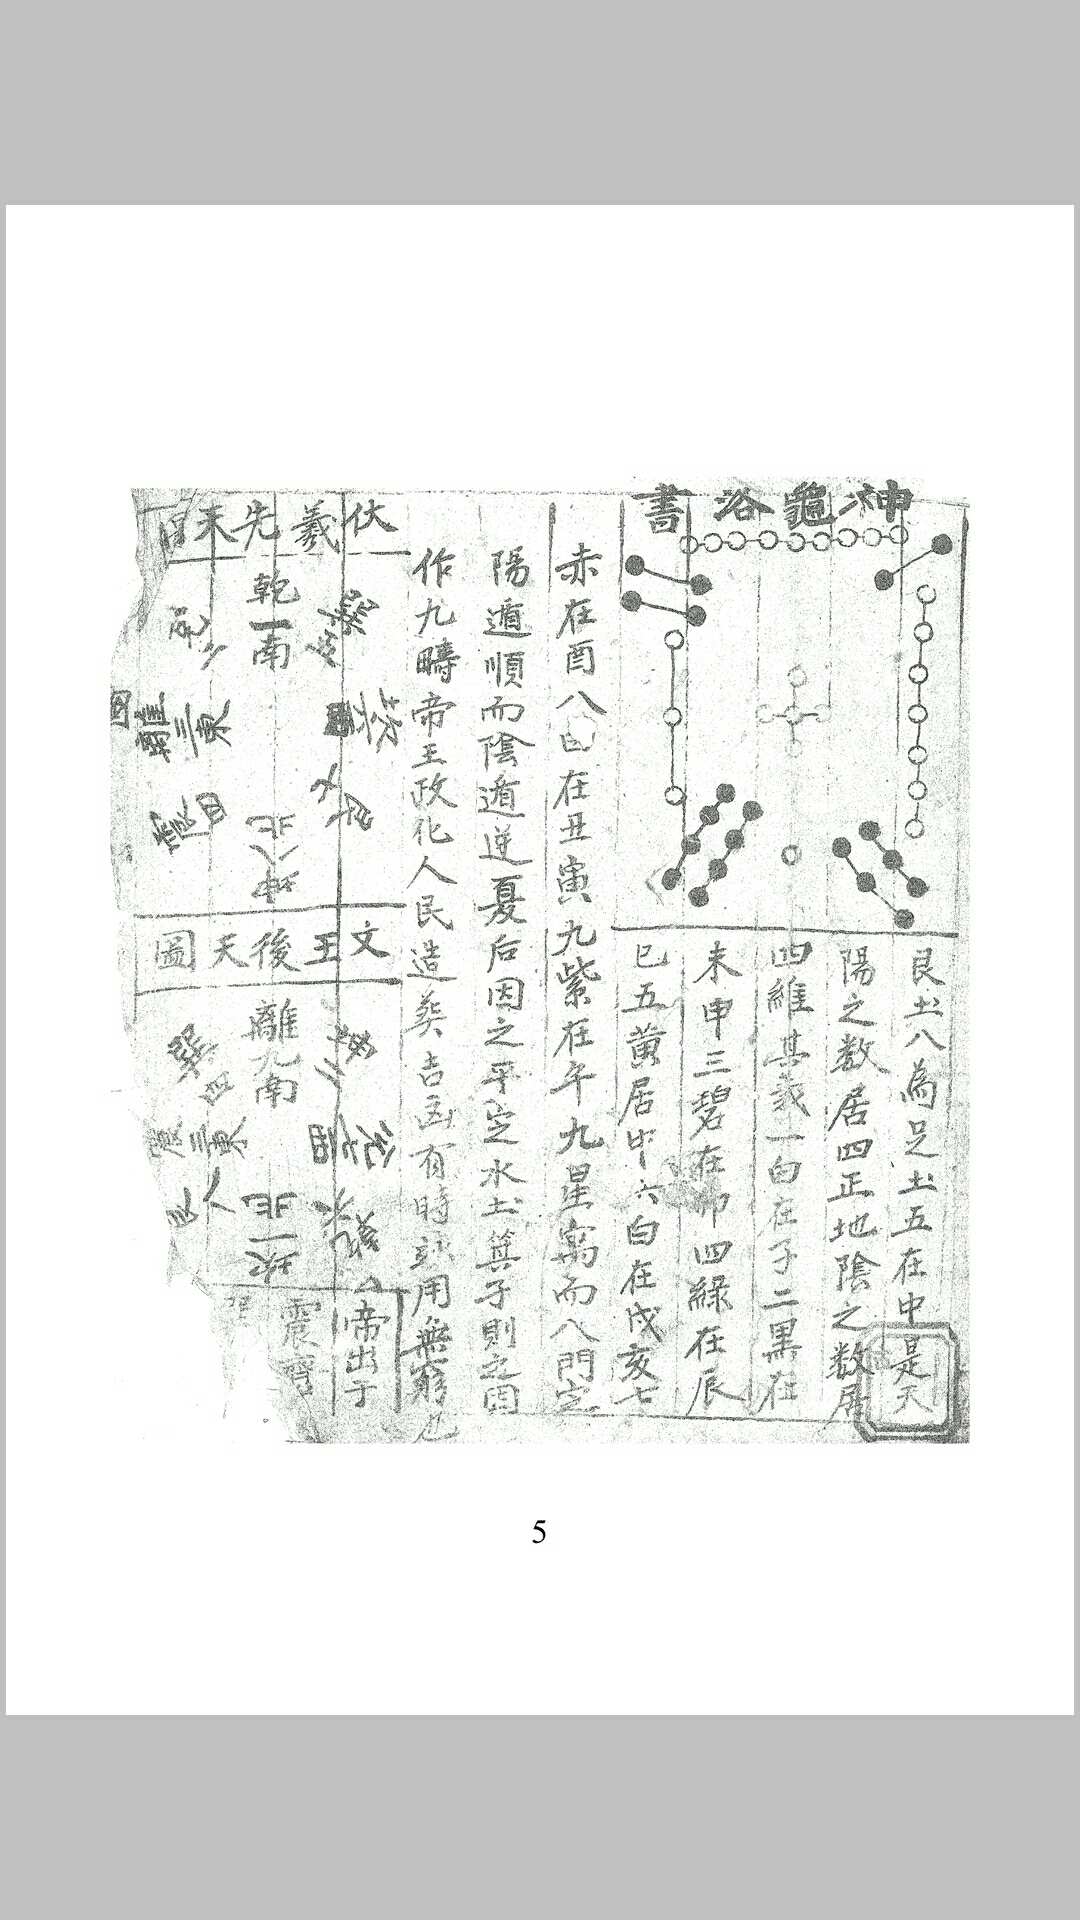 神龜洛書
艮土八為足土五在中是天
陽之数居四正地陰之数居
四維其義一白在子二黒在
未申三碧在卯四緑在辰
巳五黄居中六白在戌亥七
赤在酉八白在丑寅九紫在午九星寓而八門定
陽遁順而陰遁逆夏后因之平定水土箕子則之因
作九疇帝王政化人民造葬吉凶有時試用無窮也
伏羲先天
巽五
乾一南
兌二
坎西六
離三東
艮七
震四
坤八北
文王後天圖
坤二
離九南
巽四
兌七西
震三東
乾六
坎一北
艮八
帝出于
震齊
巽
5